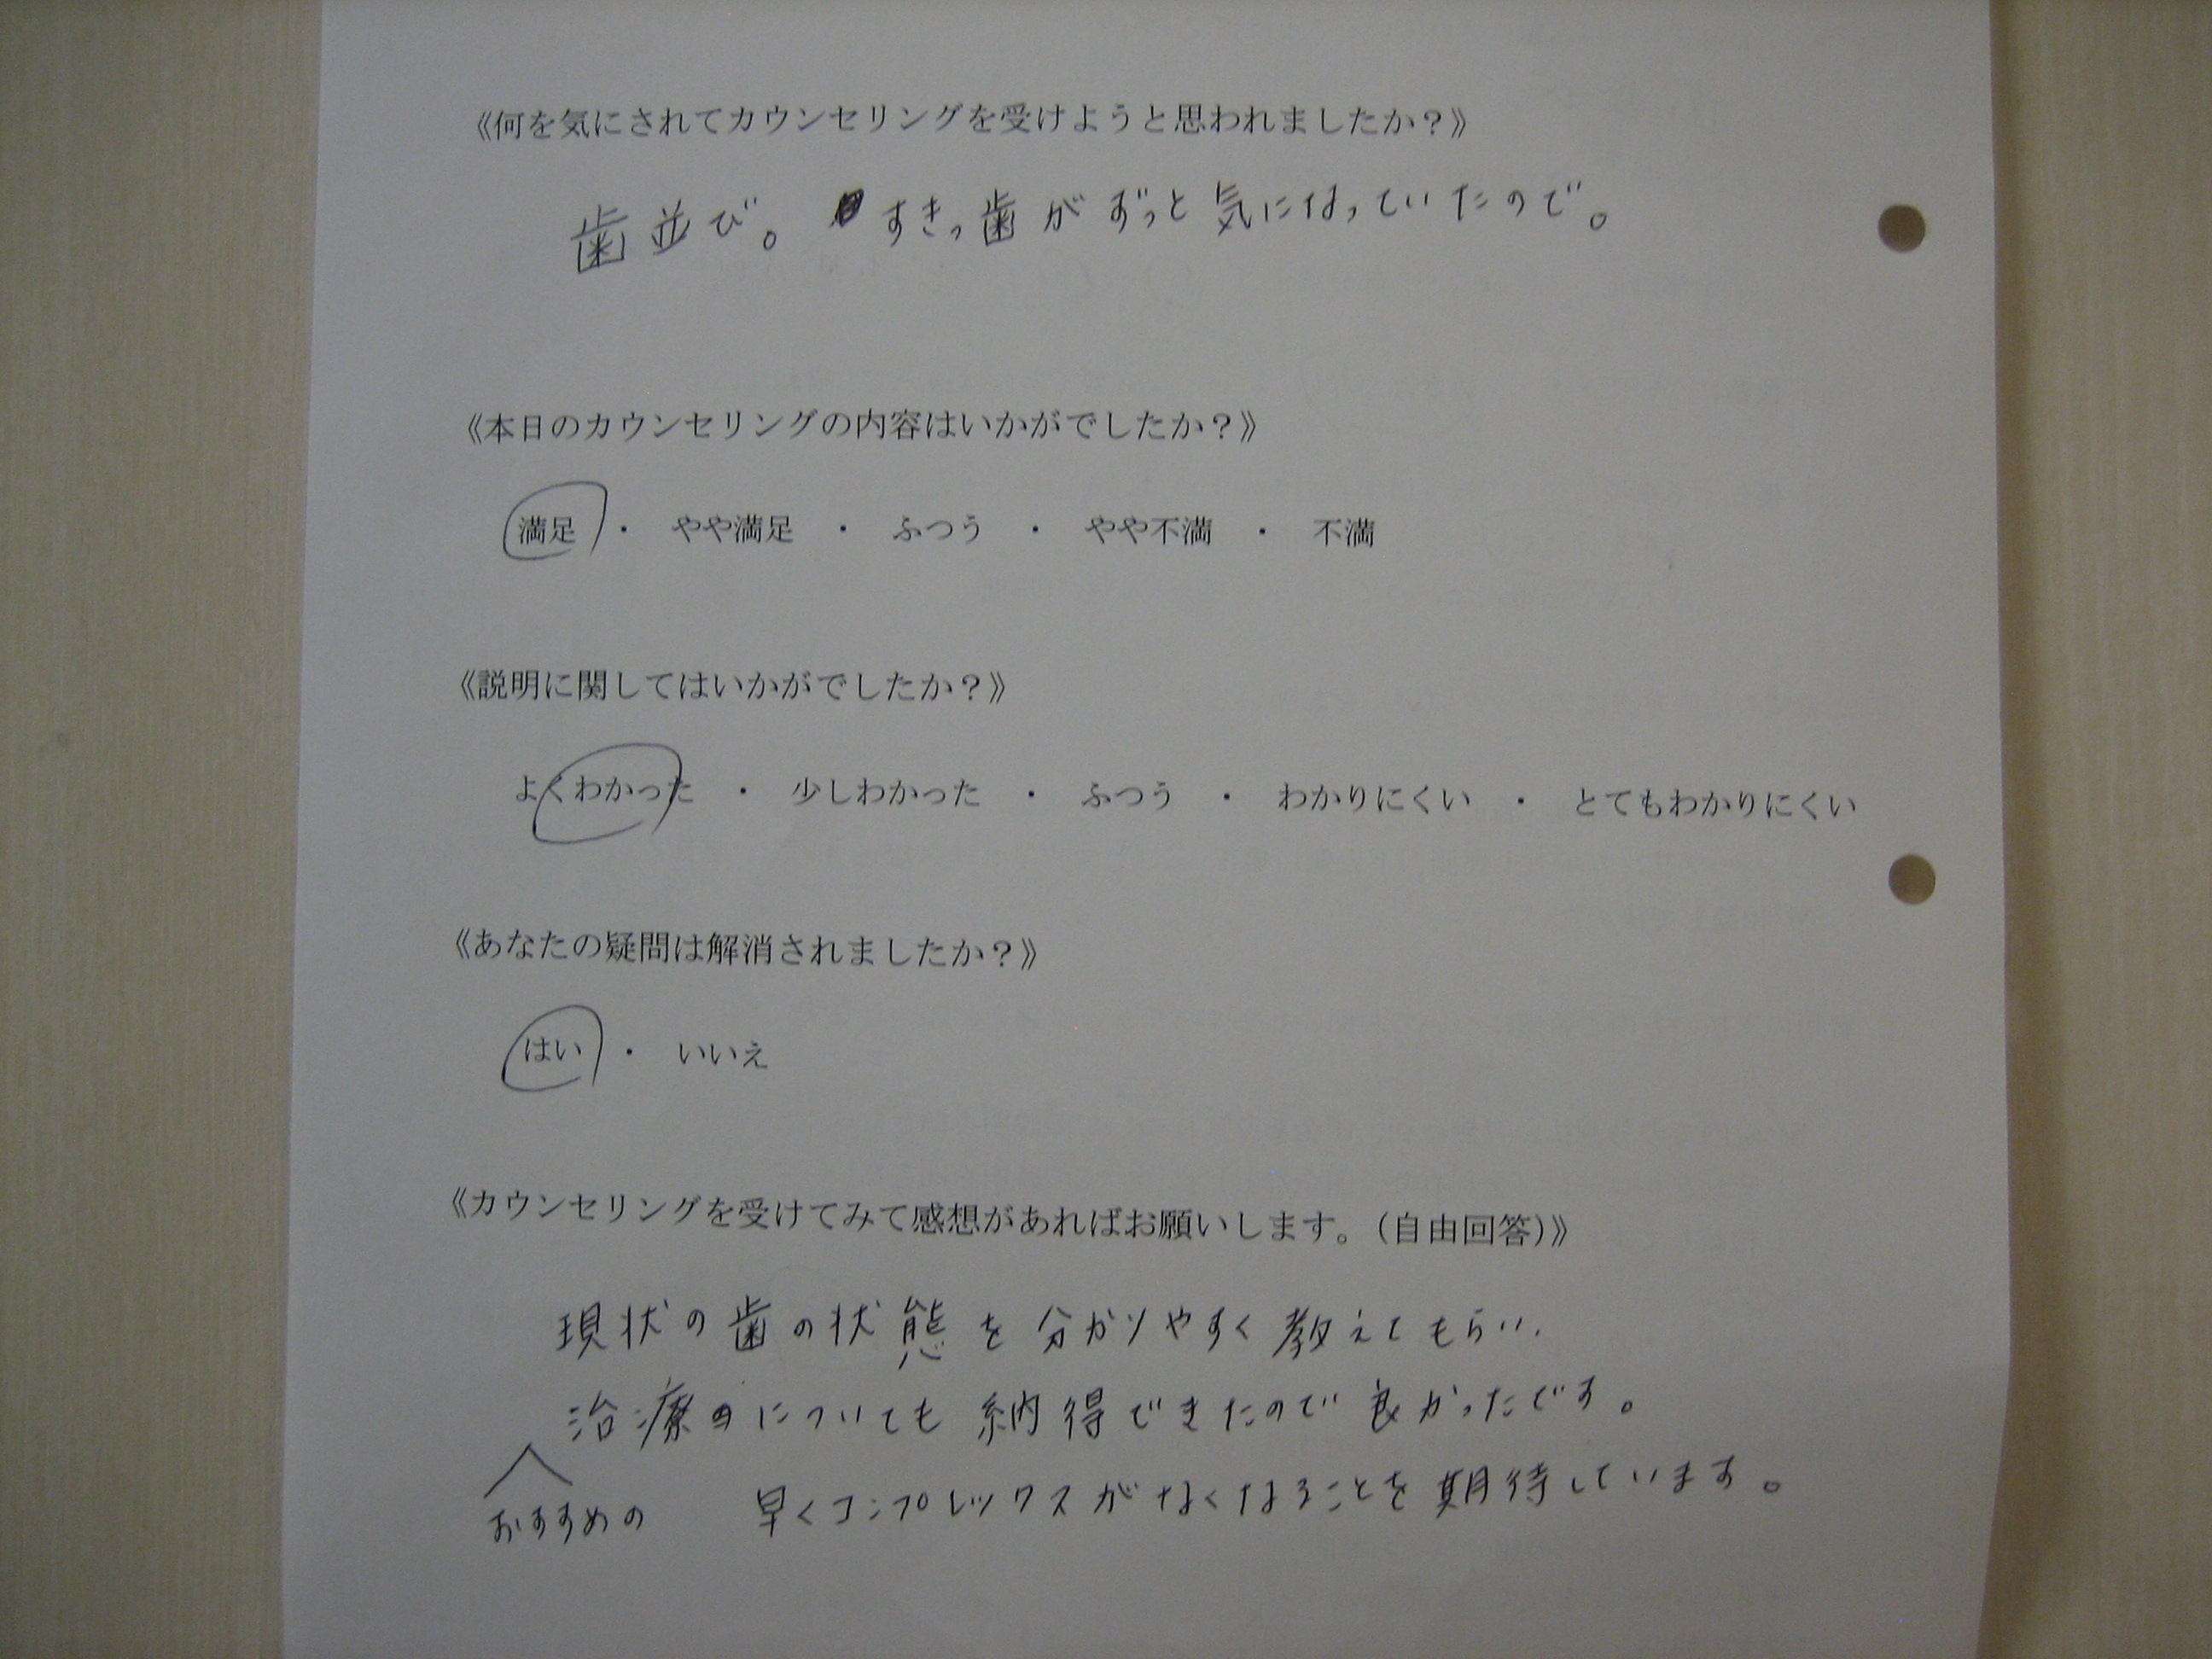 《何を気にされてカウンセリングを受けようと思われましたか？》
歯並び。 すきっ歯がずっと気になっていたので。
《本日のカウンセリングの内容はいかがでしたか？》
満足 ・ やや満足 ・ ふつう ・ やや不満 ・ 不満
《説明に関してはいかがでしたか？》
よくわかった ・ 少しわかった ・ ふつう ・ わかりにくい ・ とてもわかりにくい
《あなたの疑問は解消されましたか？》
はい ・ いいえ
《カウンセリングを受けてみて感想があればお願いします。（自由回答）》
現状の歯の状態を分かりやすく教えてもらい、
治療についても納得できたので良かったです。
おすすめの
早くコンプレックスがなくなることを期待しています。